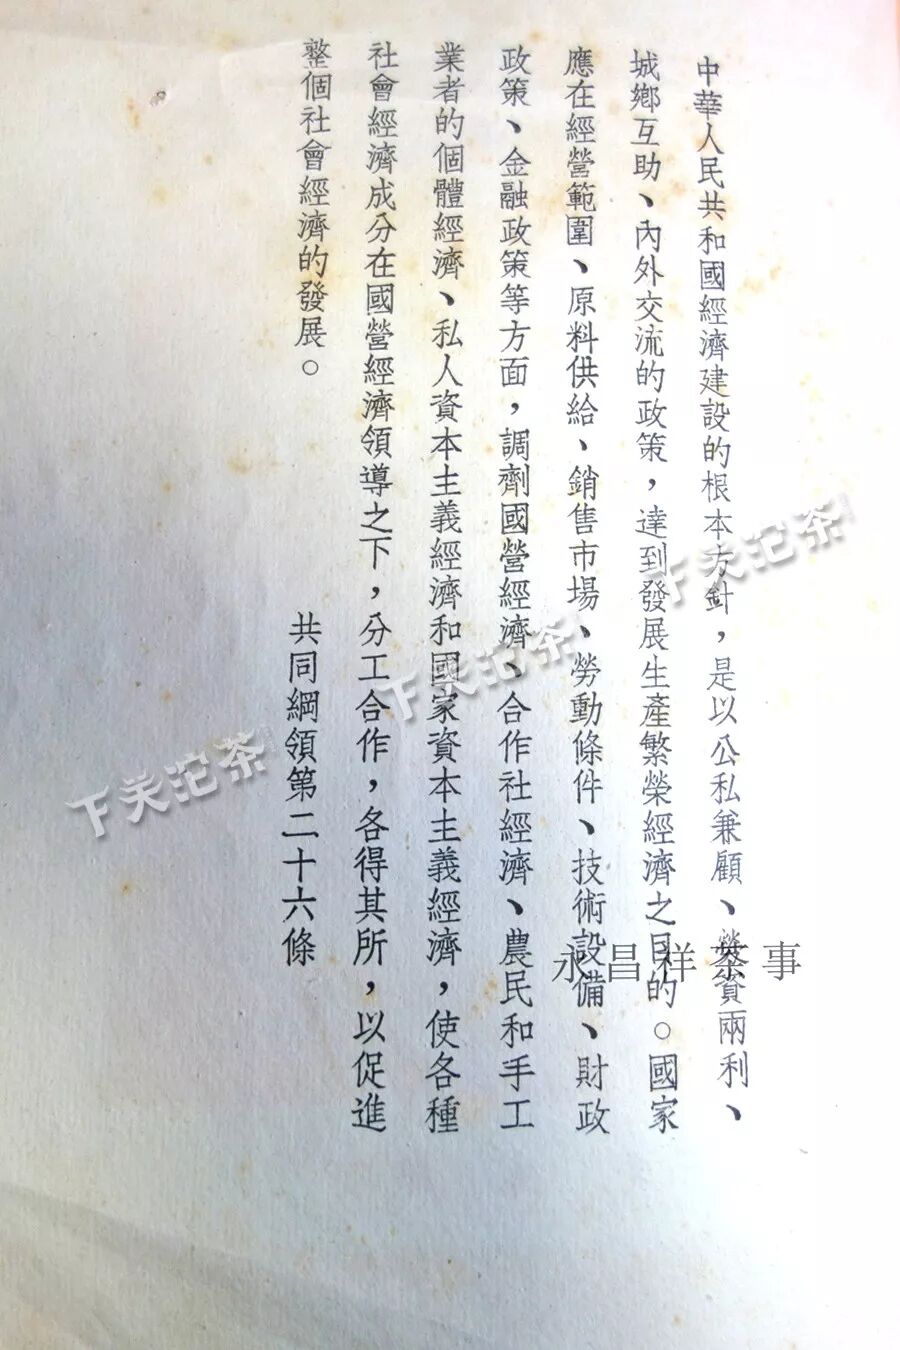 中華人民共和國經濟建設的根本方針，是以公私兼顧、勞資兩利、
城鄉互助、內外交流的政策，達到發展生產繁榮經濟之目的。國家
應在經營範圍、原料供給、銷售市場、勞動條件、技術設備、財政
政策、金融政策等方面，調劑國營經濟、合作社經濟、農民和手工
業者的個體經濟、私人資本主義經濟和國家資本主義經濟，使各種
社會經濟成分在國營經濟領導之下，分工合作，各得其所，以促進
整個社會經濟的發展。
共同綱領第二十六條
下关沱茶
下关沱茶
下关沱茶
永昌祥茶事